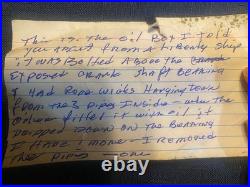 This is the oil Box I told
you about from A Liberty Ship
it was Bolted Above the Crank
Exposed Crank Shaft Bearing
I Had Rope wicks Hanging Down
From the 3 Pipes Inside - when the
filled it with oil it
Dripped Down on the Bearing
I Have 1 more - I Removed
the Pipes